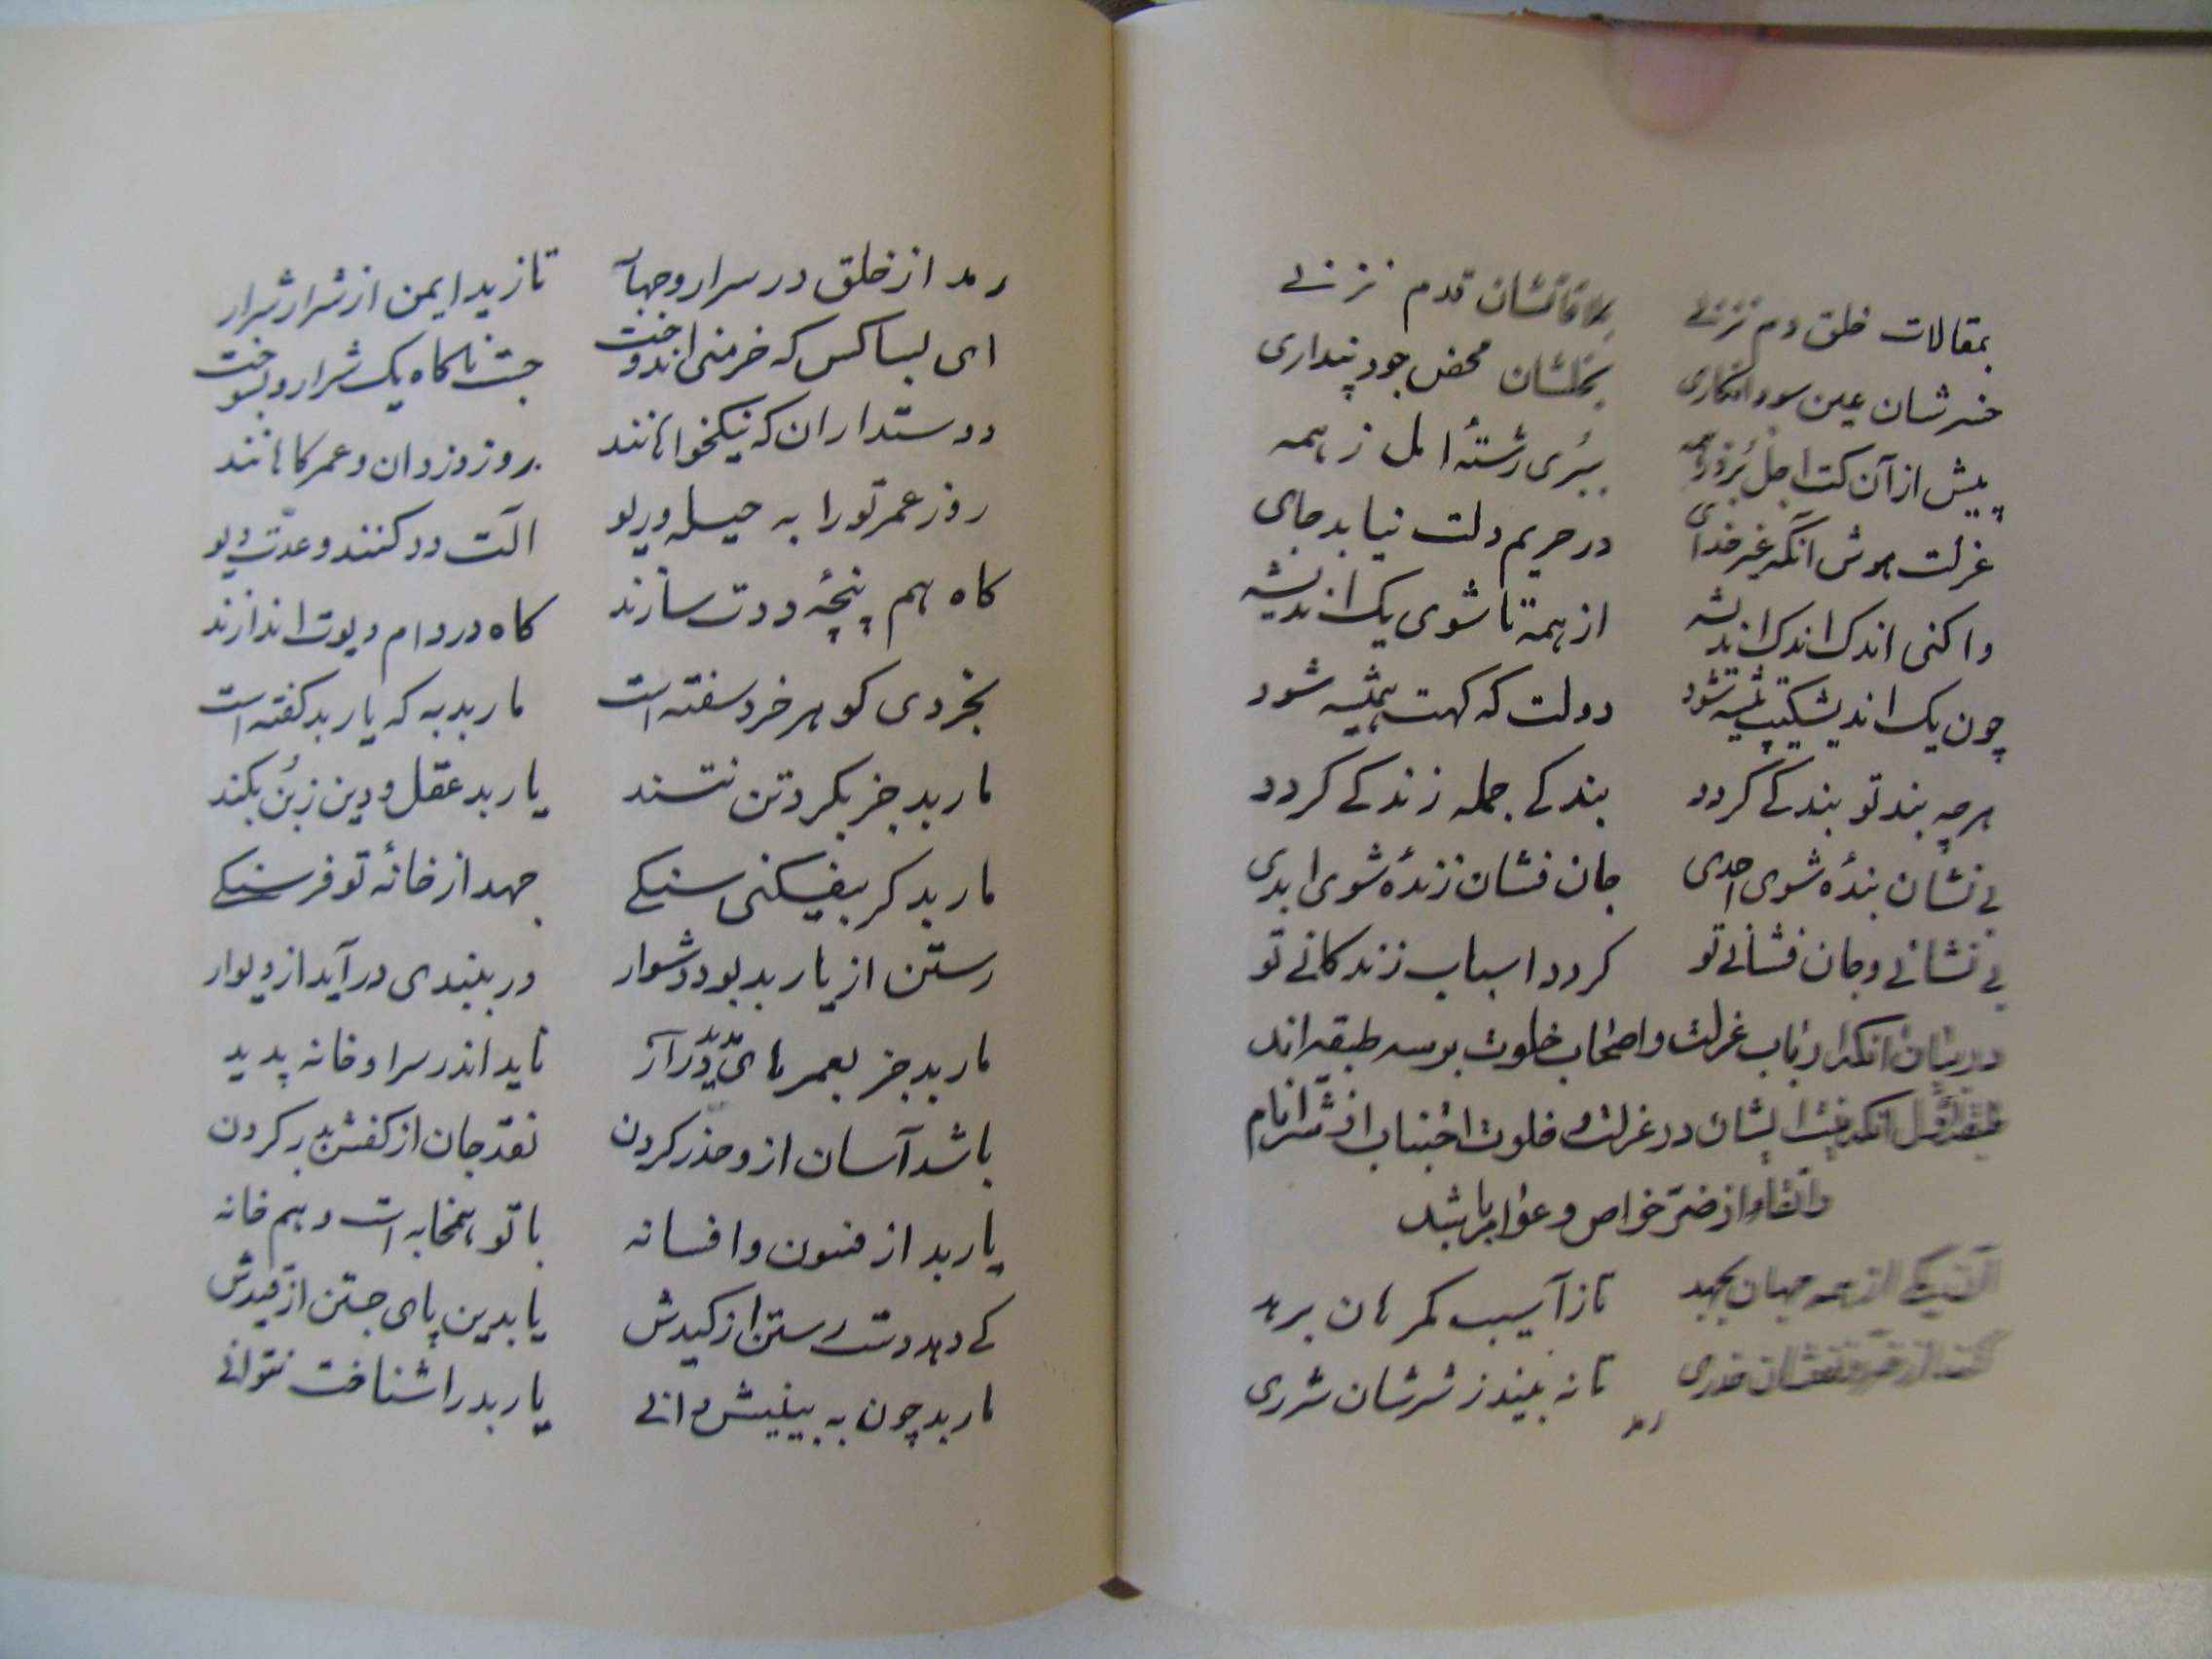 بمقالات خلق دم نزنی بملاقاتشان قدم نزنی
خسرشان عین سود انکاری بخلشان محض جود پنداری
پیش از آن کت اجل بُرد ز همه ببُری رشتهٔ امل ز همه
عزلت هوش آنکه غیر خدای در حریم دلت نیابد جای
واکنی اندک اندک اندیشه از همه تا شوی یک اندیشه
چون یک اندیشکیت پیشه شود دولت که کهت همیشه شود
هرچه بند تو بندکی کردد بندکی جمله زندکی کردد
بی نشان بندهٔ شوی احدی جان فشان زندهٔ شوی ابدی
بی نشانی و جان فشانی تو کردد اسباب زندکانی تو
در بیان انکه ارباب عزلت و اصحاب خلوت بر سه طبقه اند
طبقه اول انکه نیت ایشان در عزلت و خلوت اجتناب از شر انام
و اتقاء از ضرّ خواص و عوام باشد
آن یکی از همه جهان بجهد تا ز آسیب کمرهان برهد
کند از خیر و نفعشان حذری تا نه بیند ز شرشان شرری
رمد
رمد از خلق در سرار و جهار تا زید ایمن از شرار شرار
ای بسا کس که خرمنی اندوخت جست ناکاه یک شرار و بسوخت
دوستداران که نیکخواهانند روز دزدان و عمر کاهانند
روز عمر تو را به حیله و ریو الت دد کنند و عدّت دیو
کاه هم پنجهٔ ددت سازند کاه در دام دیوت اندازند
بخردی کو هر خرد سفته است مار بد به که یار بد کفته است
مار بد جز بکرد تن نتند یار بد عقل و دین ز بُن بکند
مار بد کر بیفکنی سنکی جهد از خانهٔ تو فرسنکی
رستن از یار بد بود دشوار در ببندی در آید از دیوار
مار بد جز بعمرهای مدید ناید اندر سرا و خانه پدید
باشد آسان ازو حذر کردن نقد جان از کفش بدر کردن
یار بد از فسون و افسانه با تو همخابه است و هم خانه
کی دهد دست رستن از کیدش یا بدین پای جستن از قیدش
مار بد چون به بینیش دانی یار بد را شناخت نتوانی